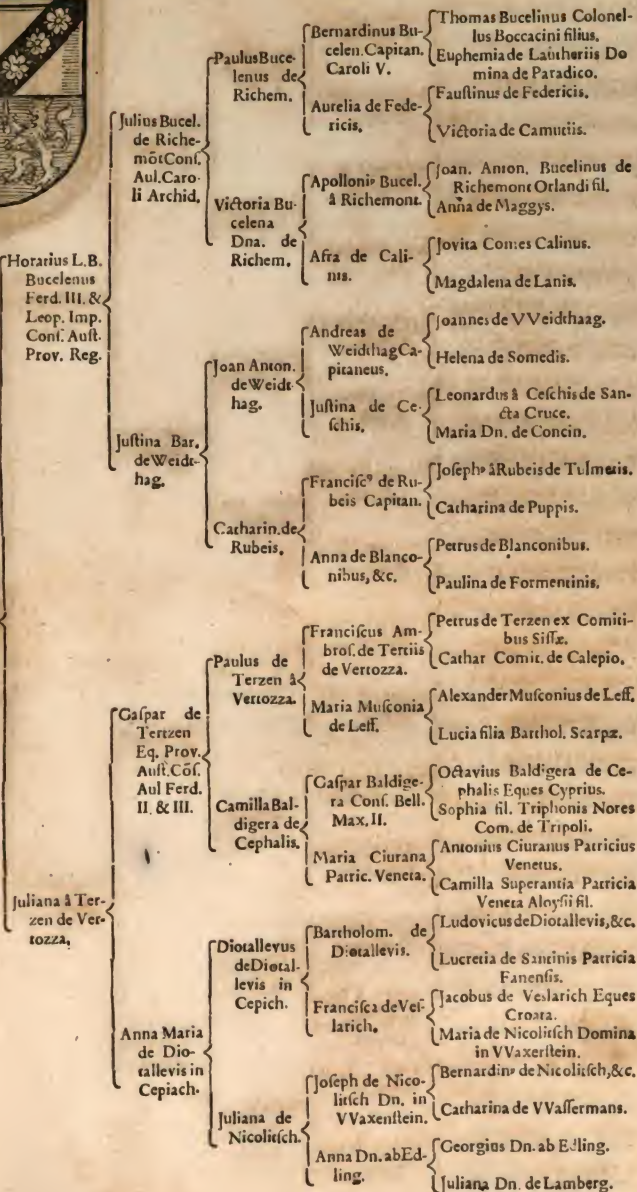 Horatius L.B.
Bucelenus
Ferd. III. &
Leop. Imp.
Conſ. Auſt.
Prov. Reg.
Juliana â Ter-
zen de Ver-
tozza,
Julius Bucel.
de Riche-
mōt Conſ.
Aul. Caro-
li Archid.
Juſtina Bar.
de Weidt-
hag.
Gaſpar de
Tertzen
Eq. Prov.
Auſt. Cōſ.
Aul Ferd.
II. & III.
Anna Maria
de Dio-
tallevis in
Cepiach.
Paulus Buce-
lenus de
Richem.
Victoria Bu-
celena
Dna. de
Richem.
Joan Anton.
de Weidt-
hag.
Catharin. de
Rubeis.
Paulus de
Terzen â
Vertozza.
Camilla Bal-
digera de
Cephalis.
Diotallevus
de Diotal-
levis in
Cepich.
Juliana de
Nicolitſch.
Bernardinus Bu-
celen. Capitan.
Caroli V.
Aurelia de Fede-
ricis.
Apolloniꝰ Bucel.
â Richemont.
Afra de Cali-
nis.
Andreas de
Weidthag Ca-
pitaneus.
Juſtina de Ce-
ſchis.
Franciſcꝰ de Ru-
beis Capitan.
Anna de Blanco-
nibus, &c.
Franciſcus Am-
broſ. de Tertiis
de Vertozza.
Maria Muſconia
de Leff.
Gaſpar Baldige-
ra Conſ. Bell.
Max. II.
Maria Ciurana
Patric. Veneta.
Bartholom. de
Diotallevis.
Franciſca de Veſ-
larich.
Joſeph de Nico-
litſch Dn. in
VVaxenſtein.
Anna Dn. ab Ed-
ling.
Thomas Bucelinus Colonel-
lus Boccacini filius.
Euphemia de Do
mina de Paradico.
Fauſtinus de Federicis.
Victoria de Camutiis.
Joan. Anton. Bucelinus de
Richemont Orlandi fil.
Anna de Maggys.
Jovita Comes Calinus.
Magdalena de Lanis.
Joannes de VVeidthaag.
Helena de Somedis.
Leonardus â Ceſchis de San-
cta Cruce.
Maria Dn. de Concin.
Joſephꝰ â Rubeis de Tulmetis.
Catharina de Puppis.
Petrus de Blanconibus.
Paulina de Formentinis.
Petrus de Terzen ex Comiti-
bus Siſſæ.
Cathar Comit. de Calepio.
Alexander Muſconius de Leff.
Lucia filia Barthol. Scarpæ.
Octavius Baldigera de Ce-
phalis Eques Cyprius.
Sophia fil. Triphonis Nores
Com. de Tripoli.
Antonius Ciuranus Patricius
Venetus.
Camilla Superantia Patricia
Veneta Aloyſii fil.
Ludovicus de Diotallevis, &c.
Lucretia de Santinis Patricia
Fanenſis.
Jacobus de Veslarich Eques
Croata.
Maria de Nicolitſch Domina
in VVaxerſtein.
Bernardinꝰ de Nicolitſch, &c.
Catharina de VVaſſermans.
Georgius Dn. ab Edling.
Juliana Dn. de Lamberg.